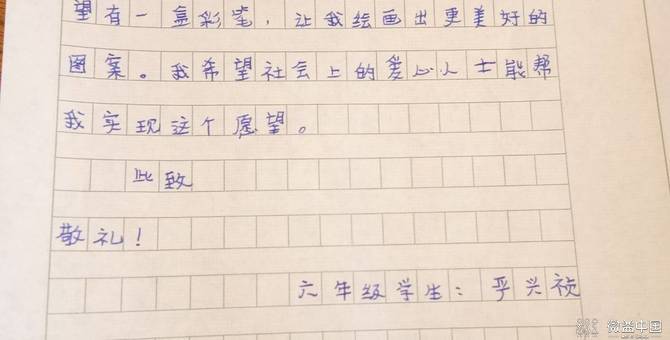 望有一盒彩笔，让我绘画出更美好的
图案。我希望社会上的爱心人士能帮
我实现这个愿望。
此致
敬礼！
六年级学生：乎兴祯
微益中国